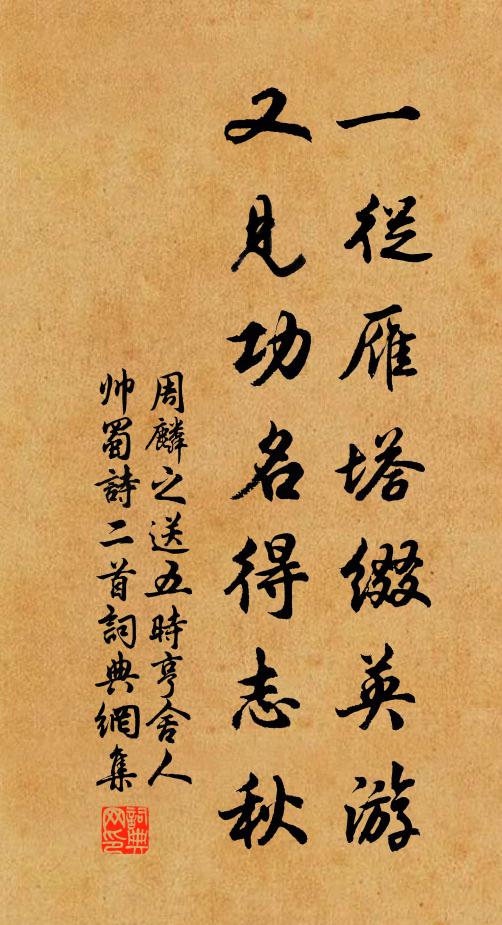 一從雁塔綴英游
又見功名得志秋
周麟之送五時亨舍人
帅蜀詩二首詞典網集
詞典网印